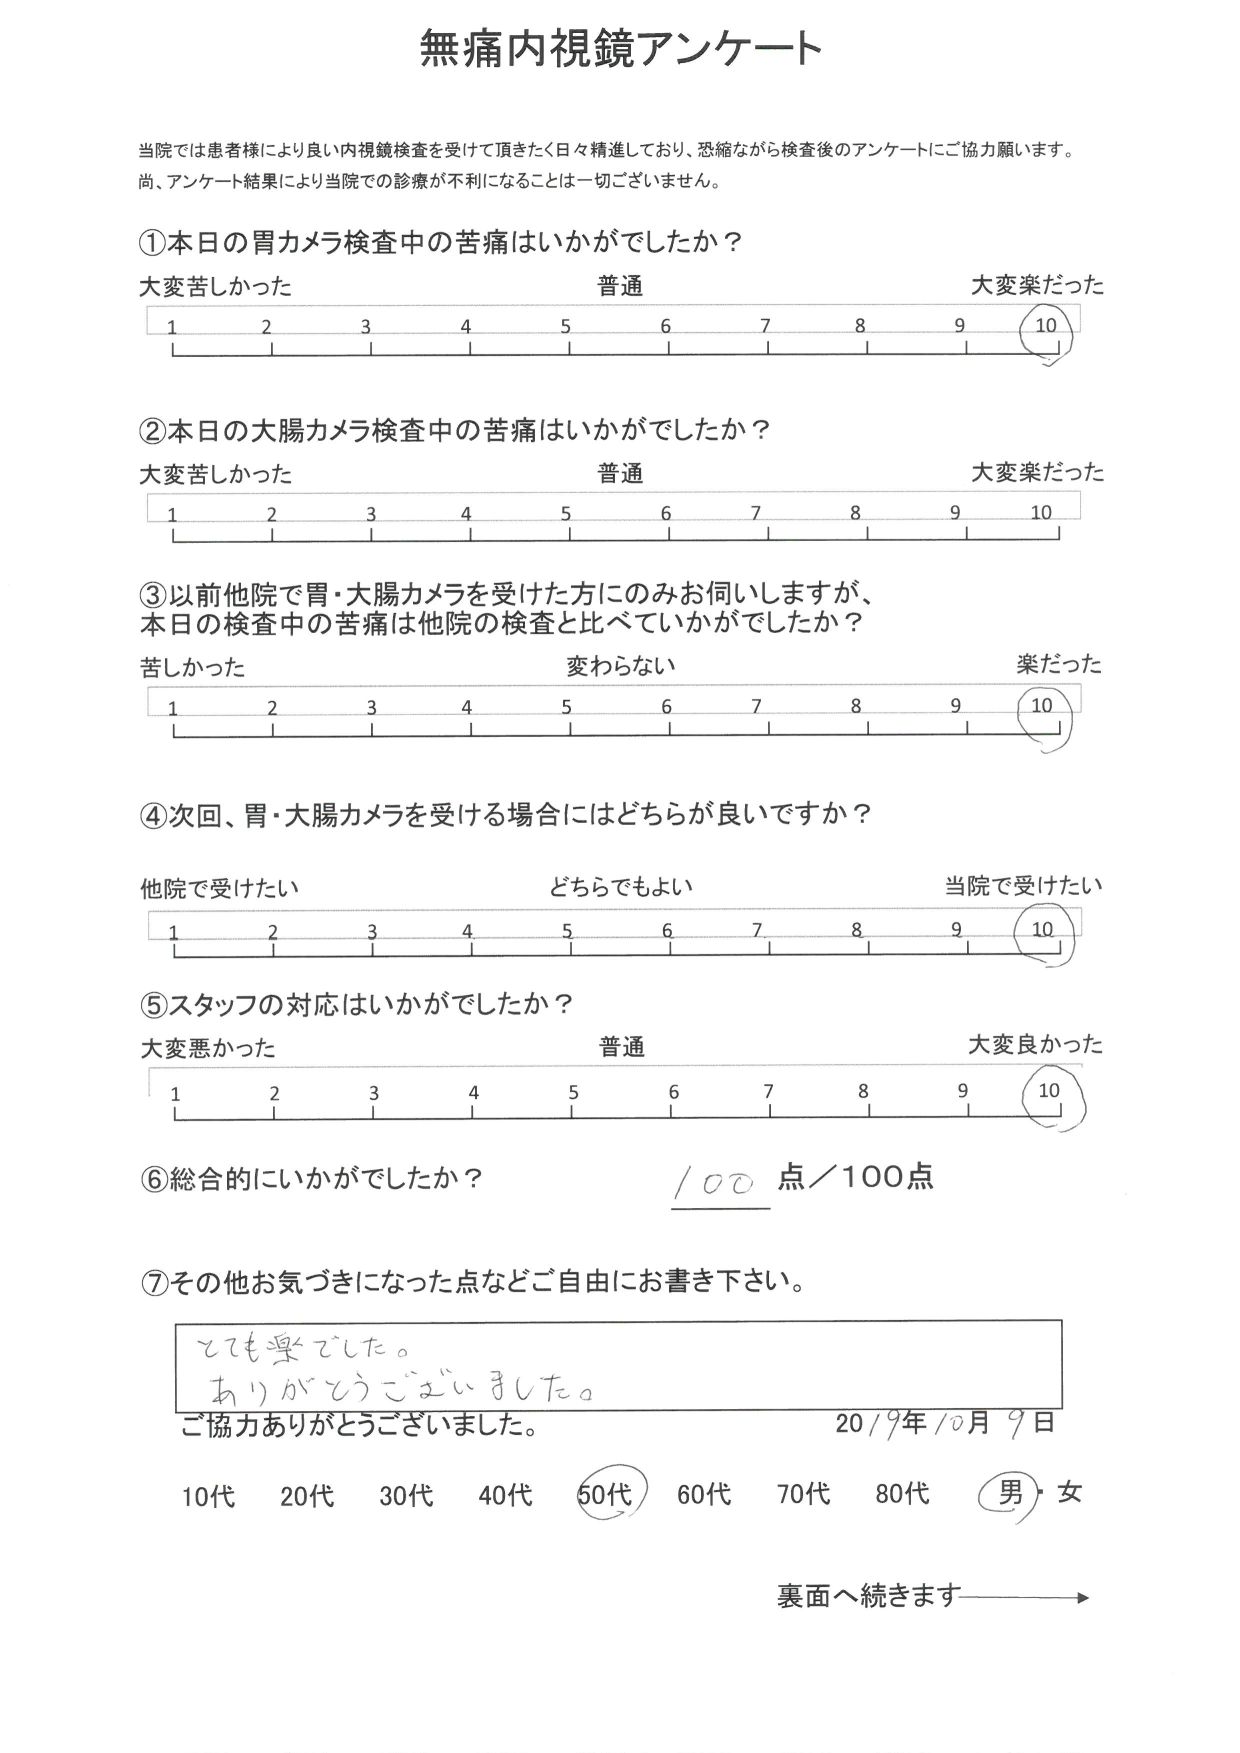 無痛内視鏡アンケート
当院では患者様により良い内視鏡検査を受けて頂きたく日々精進しており、恐縮ながら検査後のアンケートにご協力願います。
尚、アンケート結果により当院での診療が不利になることは一切ございません。
①本日の胃カメラ検査中の苦痛はいかがでしたか？
大変苦しかった 普通 大変楽だった
1 2 3 4 5 6 7 8 9 10
②本日の大腸カメラ検査中の苦痛はいかがでしたか？
大変苦しかった 普通 大変楽だった
1 2 3 4 5 6 7 8 9 10
③以前他院で胃・大腸カメラを受けた方にのみお伺いしますが、
本日の検査中の苦痛は他院の検査と比べていかがでしたか？
苦しかった 変わらない 楽だった
1 2 3 4 5 6 7 8 9 10
④次回、胃・大腸カメラを受ける場合にはどちらが良いですか？
他院で受けたい どちらでもよい 当院で受けたい
1 2 3 4 5 6 7 8 9 10
⑤スタッフの対応はいかがでしたか？
大変悪かった 普通 大変良かった
1 2 3 4 5 6 7 8 9 10
⑥総合的にいかがでしたか？ 100 点／100点
⑦その他お気づきになった点などご自由にお書き下さい。
とても楽でした。
ありがとうございました。
ご協力ありがとうございました。 2019年10月9日
10代 20代 30代 40代 50代 60代 70代 80代 男・女
裏面へ続きます